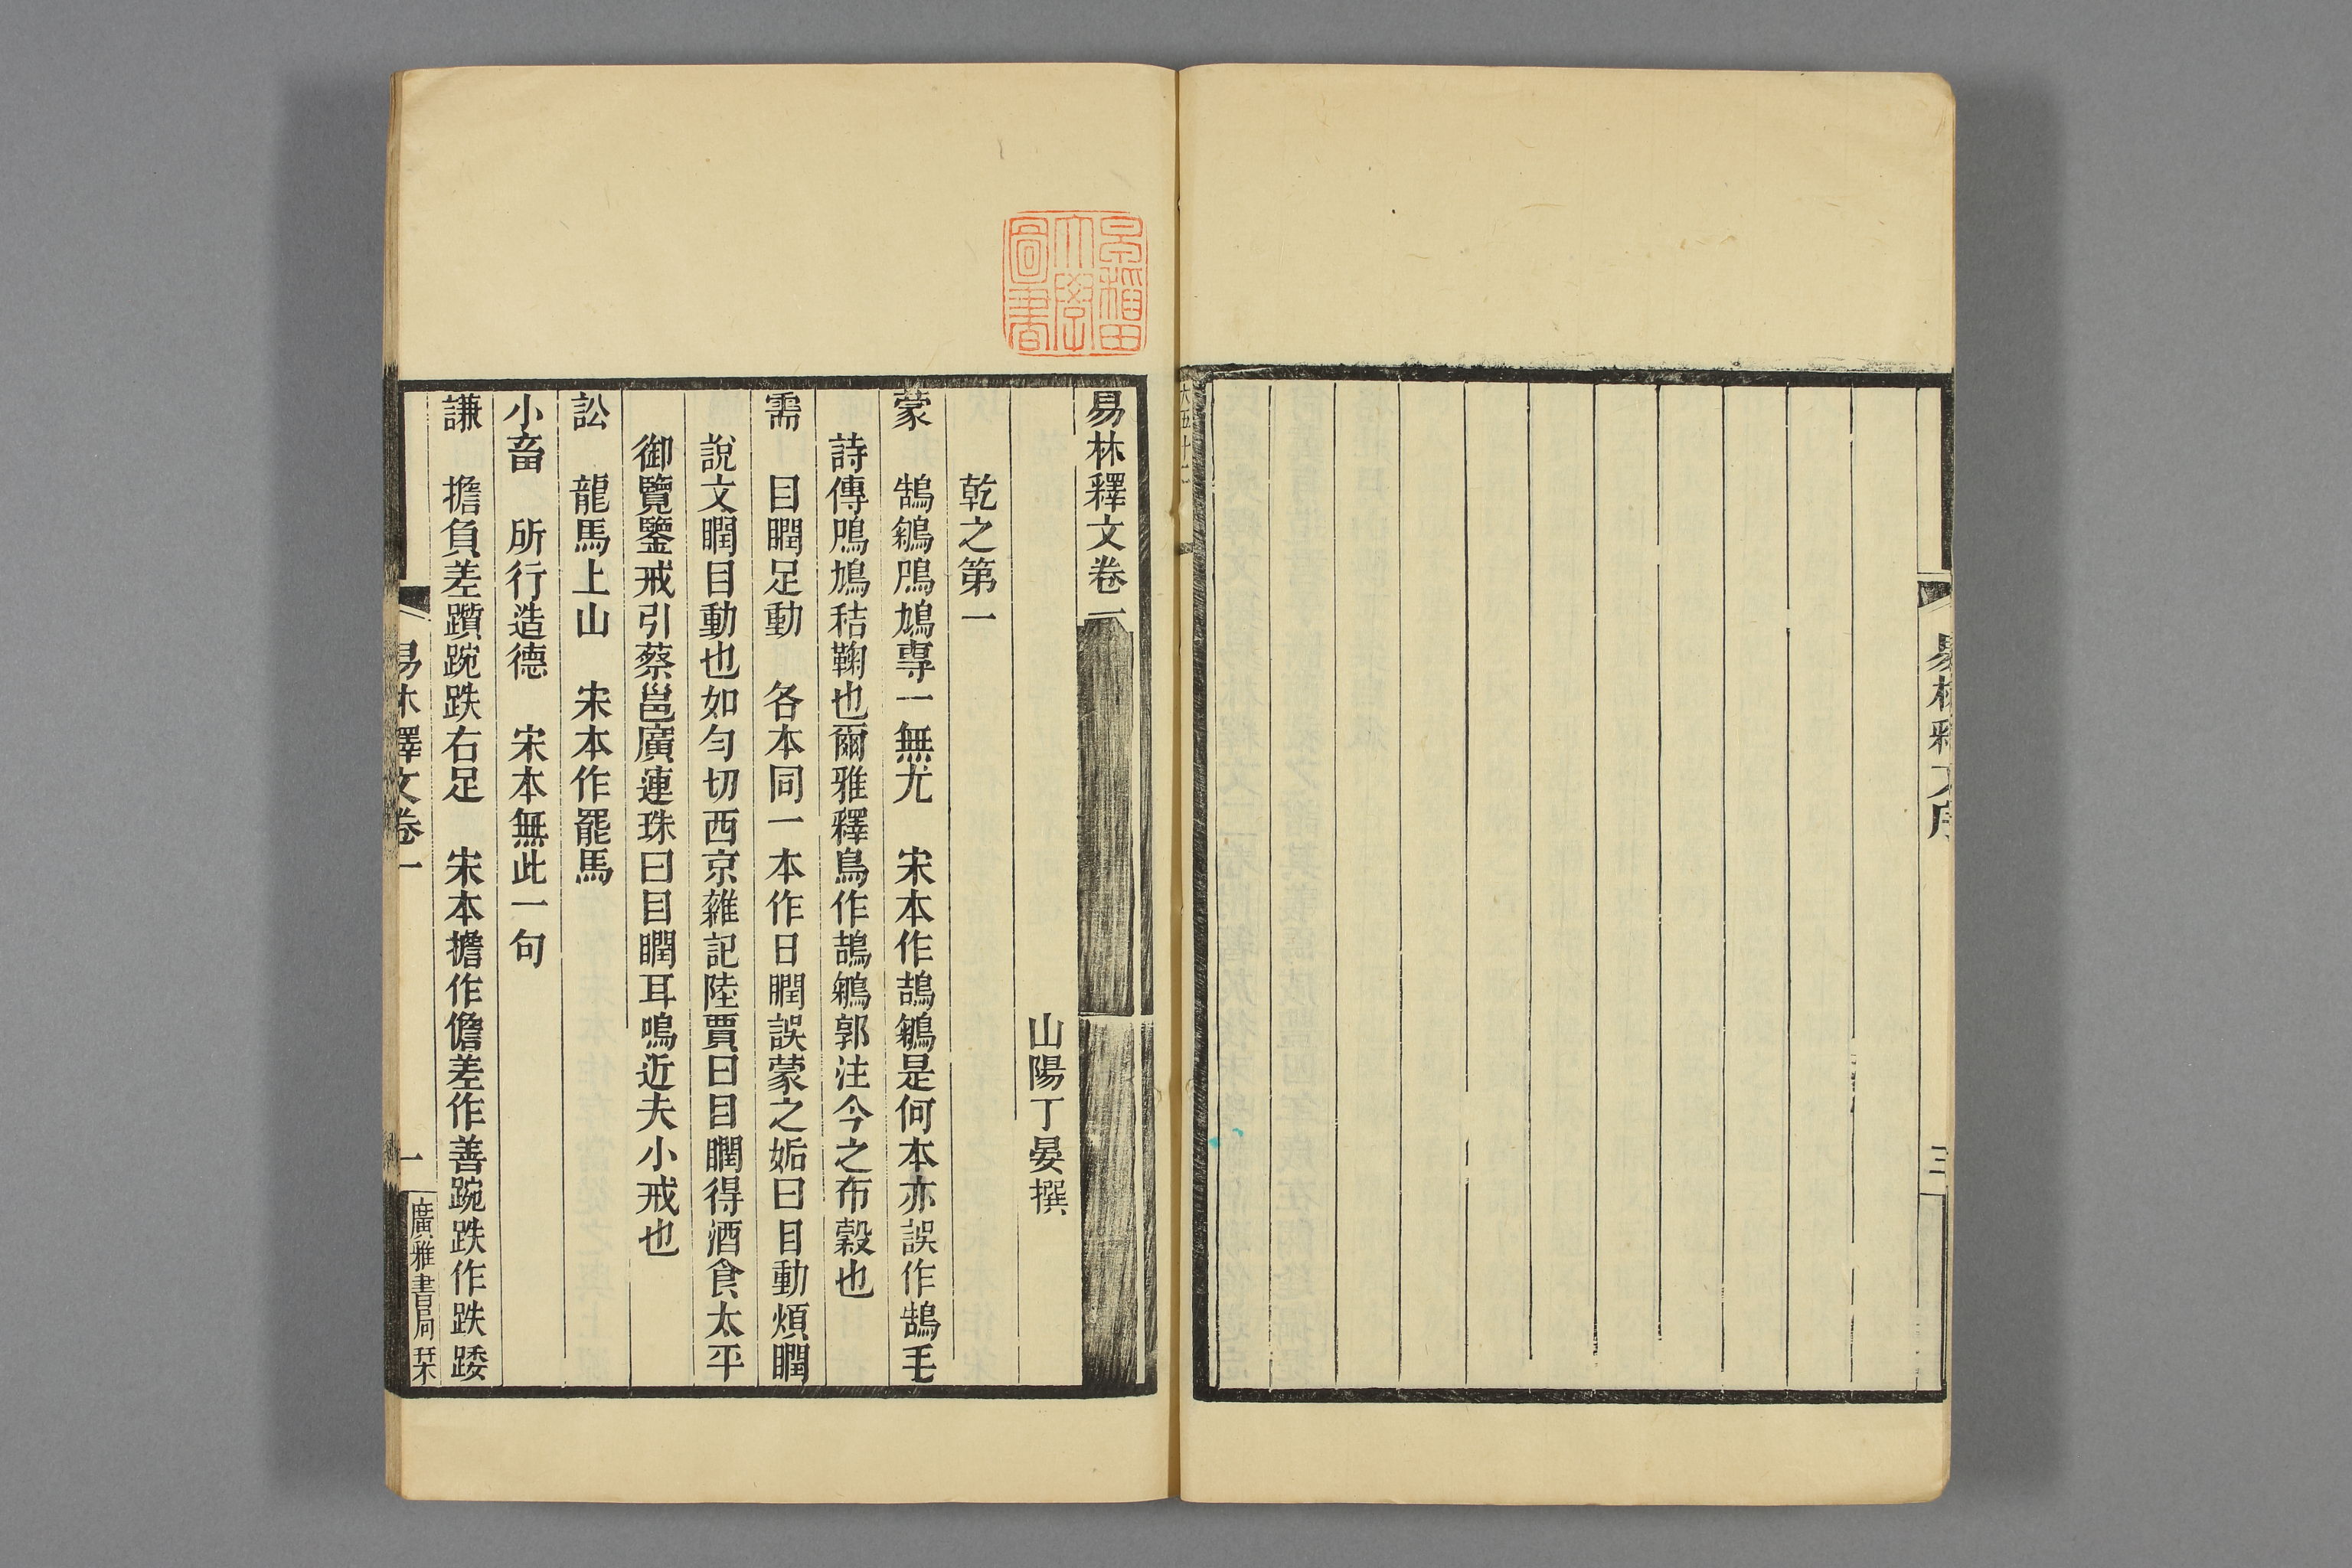 易林釋文序
三
易林釋文卷一
山陽丁晏撰
乾之第一
蒙 鵠鵴鳲鳩專一無尤 宋本作鵠鵴是何本亦誤作鵠毛
詩傳鳲鳩秸鞠也爾雅釋鳥作鵠鵴郭注今之布穀也
需 目瞤足動 各本同一本作日瞤誤蒙之姤曰目動煩瞤
說文瞤目動也如勻切西京雜記陸賈曰目瞤得酒食太平
御覽鑒戒引蔡邕廣連珠曰目瞤耳鳴近夫小戒也
訟 龍馬上山 宋本作罷馬
小畜 所行造德 宋本無此一句
謙 擔負差躓踠跌右足 宋本擔作儋差作善踠跌作跌踒
易林釋文卷一
一
廣雅書局栞
早稻田大學圖書